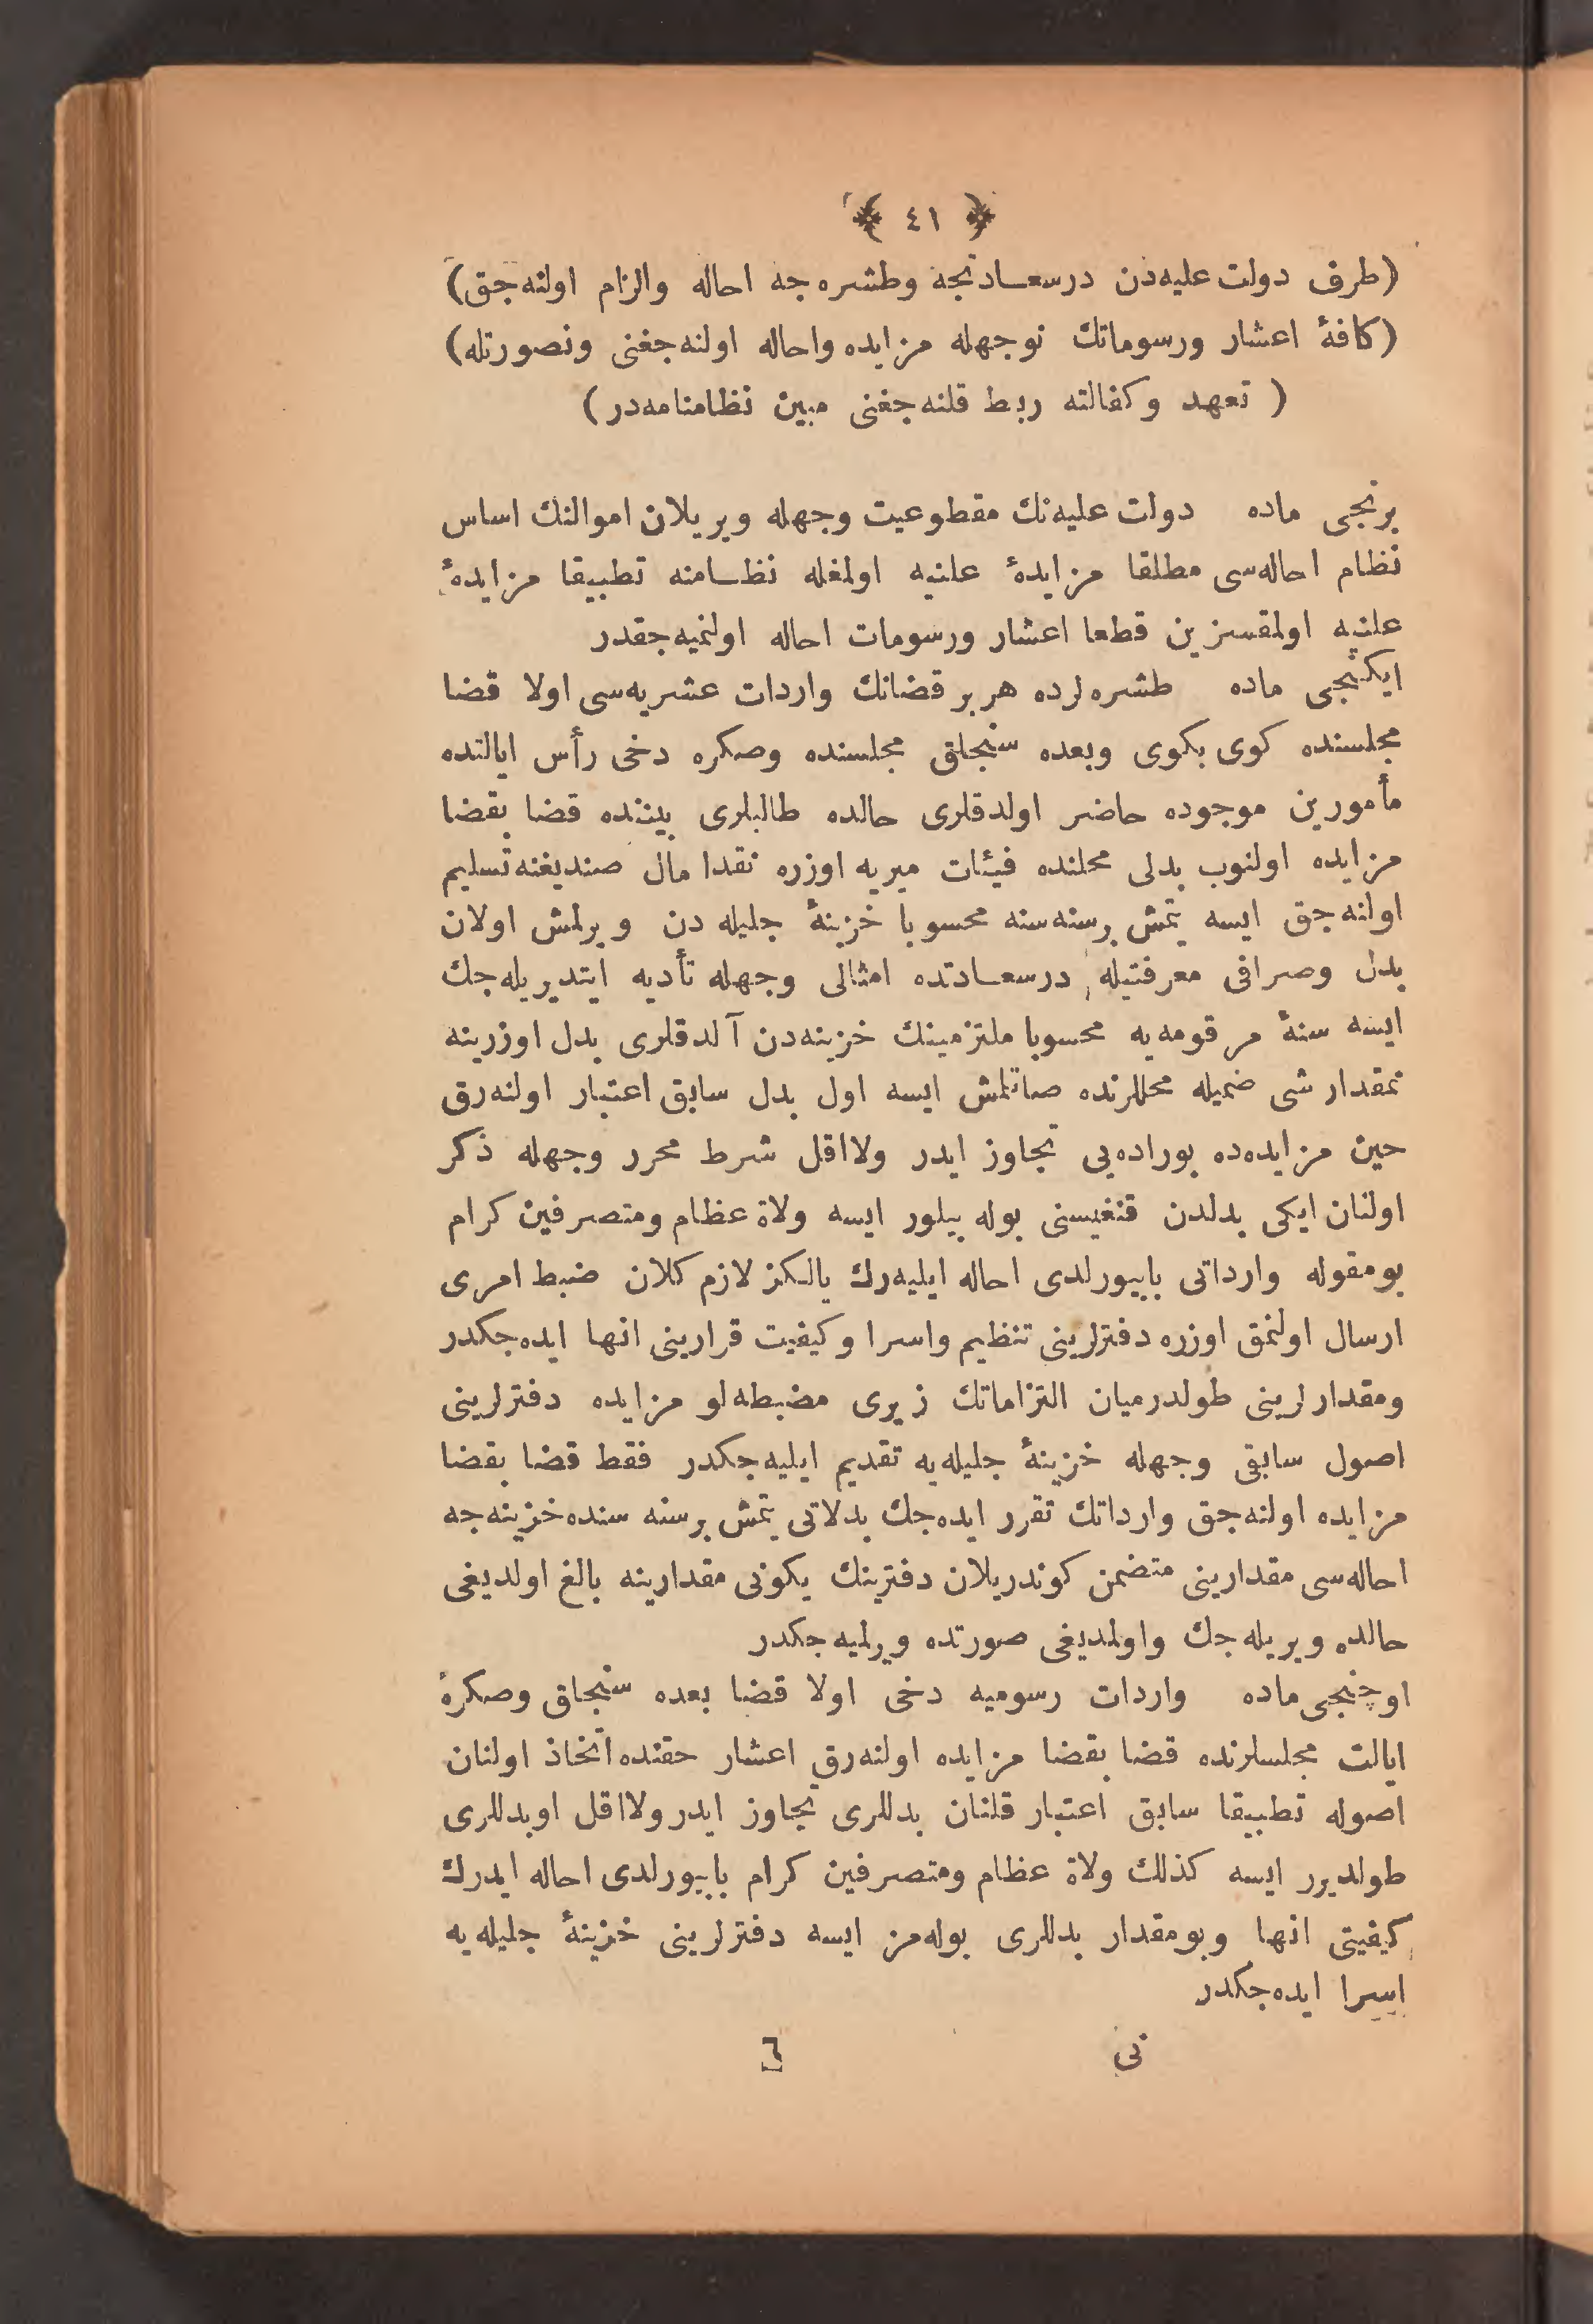 ﴿ ٤١ ﴾
(طرف دولت علیه‌دن درسعادتجه وطشره‌جه احاله والزام اولنه‌جق)
(كافۀ اعشار ورسوماتك نوجهله مزایده واحاله اولنه‌جغنی ونصورتله)
( تعهد وكفالته ربط قلنه‌جغنی مبین نظامنامه‌در)
برنجی ماده دولت علیه‌نك مقطوعیت وجهله ویریلان اموالنك اساس
نظام احاله‌سی مطلقا مزایدۀ علنیه اولمغله نظامنه تطبیقا مزایدۀ
علنیه اولمقسزین قطعا اعشار ورسومات احاله اولنمیه‌جقدر
ایكنجی ماده طشره‌لرده هربر قضانك واردات عشریه‌سی اولا قضا
مجلسنده كوی بكوی وبعده سنجاق مجلسنده وصكره دخی رأس ایالتده
مأمورین موجوده حاضر اولدقلری حالده طالبلری بیننده قضا بقضا
مزایده اولنوب بدلی محلنده فیئات میریه اوزره نقدا مال صندیغنه تسلیم
اولنه‌جق ایسه یتمش برسنه‌سنه محسوبا خزینۀ جلیله دن ویرلمش اولان
بدل وصرافی معرفتیله درسعادتده امثالی وجهله تأدیه ایتدیریله‌جك
ایسه سنۀ مرقومه‌یه محسوبا ملتزمینك خزینه‌دن آلدقلری بدل اوزرینه
نمقدار شی ضمیله محللرنده صاتلمش ایسه اول بدل سابق اعتبار اولنه‌رق
حین مزایده‌ده بوراده‌یی تجاوز ایدر ولااقل شرط محرر وجهله ذكر
اولنان ایكی بدلدن قنغیسنی بوله بیلور ایسه ولاة عظام ومتصرفین كرام
بومقوله وارداتی بابیورلدی احاله ایلیه‌رك یالكز لازم كلان ضبط امری
ارسال اولنمق اوزره دفترلرینی تنظیم واسرا وكیفیت قرارینی انها ایده‌جكدر
ومقدارلرینی طولدرمیان التزاماتك زیری مضبطه‌لو مزایده دفترلرینی
اصول سابقی وجهله خزینۀ جلیله‌یه تقدیم ایلیه‌جكدر فقط قضا بقضا
مزایده اولنه‌جق وارداتك تقرر ایده‌جك بدلاتی یتمش برسنه سنده خزینه‌جه
احاله‌سی مقدارینی متضمن كوندریلان دفترینك یكونی مقدارینه بالغ اولدیغی
حالده ویریله‌جك واولمدیغی صورتده ویرلمیه‌جكدر
اوچنجی ماده واردات رسومیه دخی اولا قضا بعده سنجاق وصكرۀ
ایالت مجلسلرنده قضا بقضا مزایده اولنه‌رق اعشار حقنده اتخاذ اولنان
اصوله تطبیقا سابق اعتبار قلنان بدللری تجاوز ایدر ولااقل اوبدللری
طولدیرر ایسه كذلك ولاة عظام ومتصرفین كرام بابیورلدی احاله ایدرك
كیفیتی انها وبومقدار بدللری بوله‌مز ایسه دفترلرینی خزینۀ جلیله‌یه
اسرا ایده‌جكدر
نی ٦